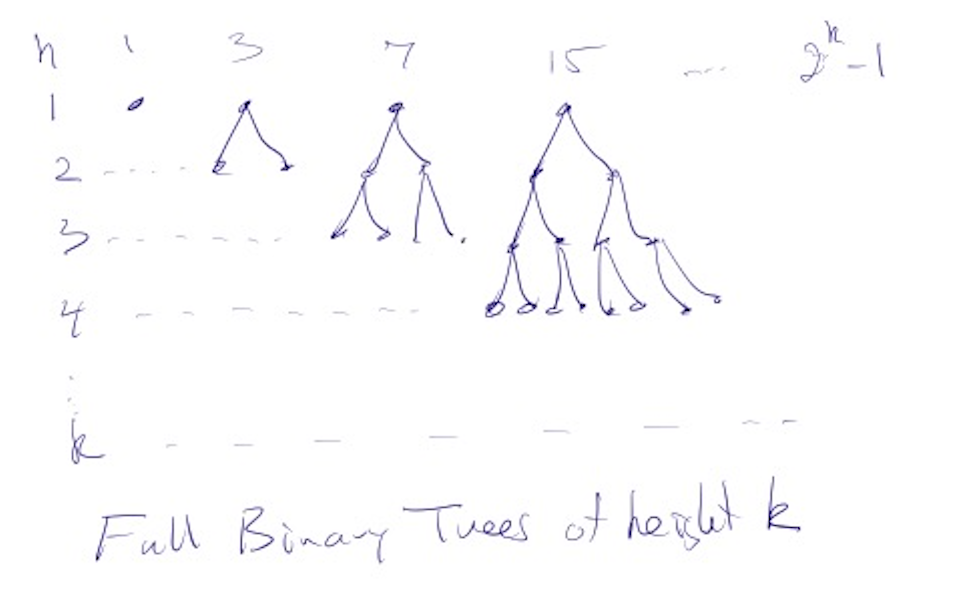 n 1 3 7 15 ... 2^k - 1
1
2
3
4
k
Full Binary Trees of height k